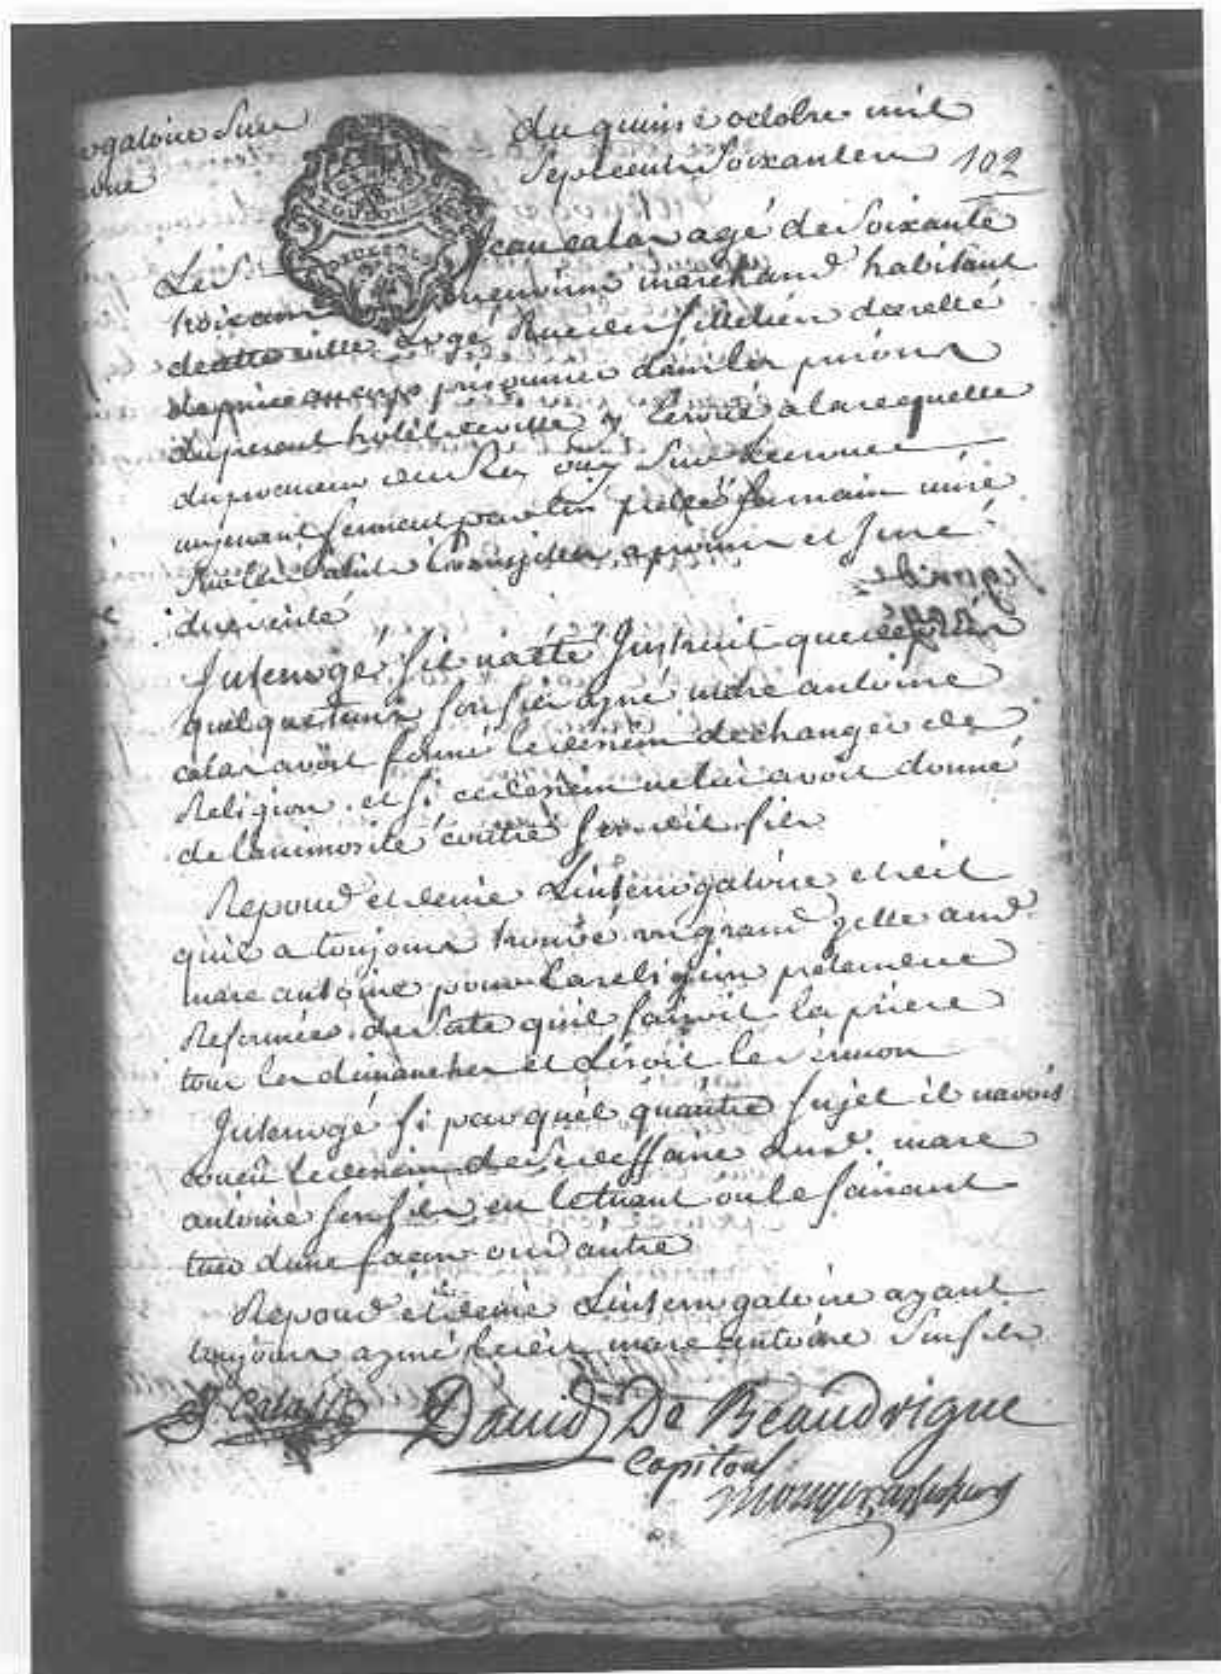 ogatoire sur
du quinse octobre mil
septcent soixanteun 102
Le Sr Jean calas agé de soixante
trois ans ou environ marchand habitant
de cette ville logé Rue des filletiers decretté
de prise au corps prisonnier dans les prisons
du present hotel de ville y ecroüé a la requette
du procureur du Roy ouy sur
moyenant serment par lui preté sa main mise
sur les saints evangilles a promis et Juré
dire verité
Interrogé s'il na eté Instruit que depuis
quelque tems son fils ayné marc antoine
calas avoit formé le dessein de changer de
Religion et si ce dessein ne lui avoit donné
de lanimosité contre son dit fils
Repond et denie Linterrogatoire et dit
quil a toujours trouvé un grand zelle aud.
marc antoine pour la religion pretendue
Reformée de sorte quil faisoit la priere
tous les dimanches et Lisoit le sermon
Interrogé si par quel quautre sujet il navoit
conçu le dessein de se deffaire dud. marc
antoine son fils en le tuant ou le faisant
tuer dune façon ou dautre
Repond et denie Linterrogatoire ayant
toujours aymé ledit marc antoine son fils
J. Calas
David De Beaudrigue
Capitoul